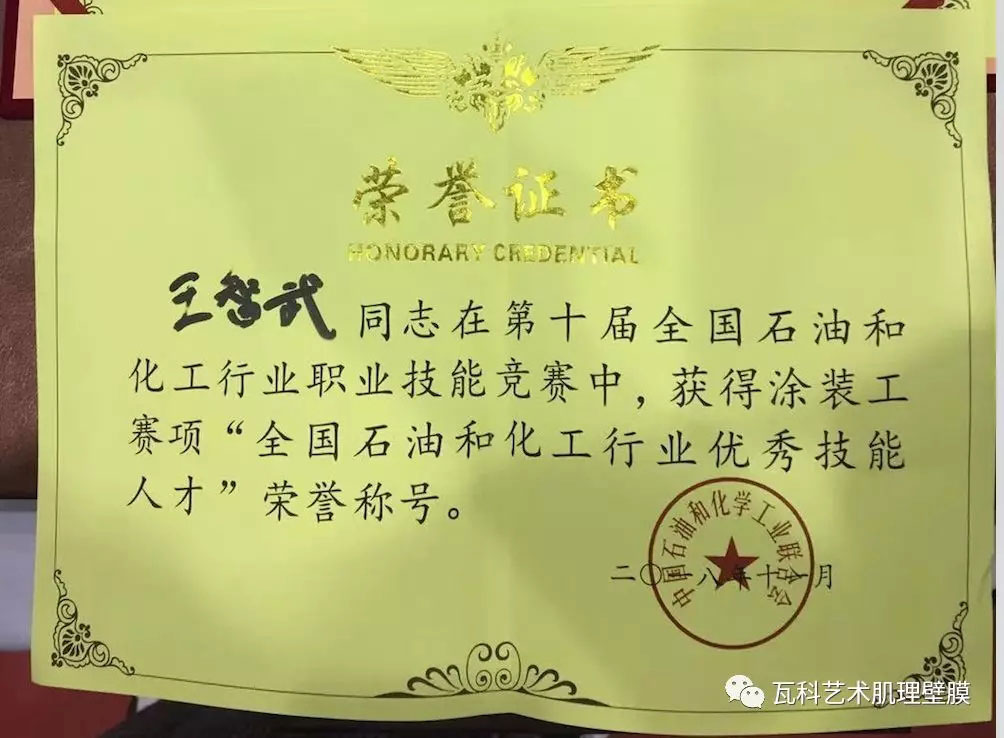 荣誉证书
HONORARY CREDENTIAL
王智武 同志在第十届全国石油和
化工行业职业技能竞赛中，获得涂装工
赛项“全国石油和化工行业优秀技能
人才”荣誉称号。
中国石油和化学工业联合会
二〇一八年十一月
瓦科艺术肌理壁膜